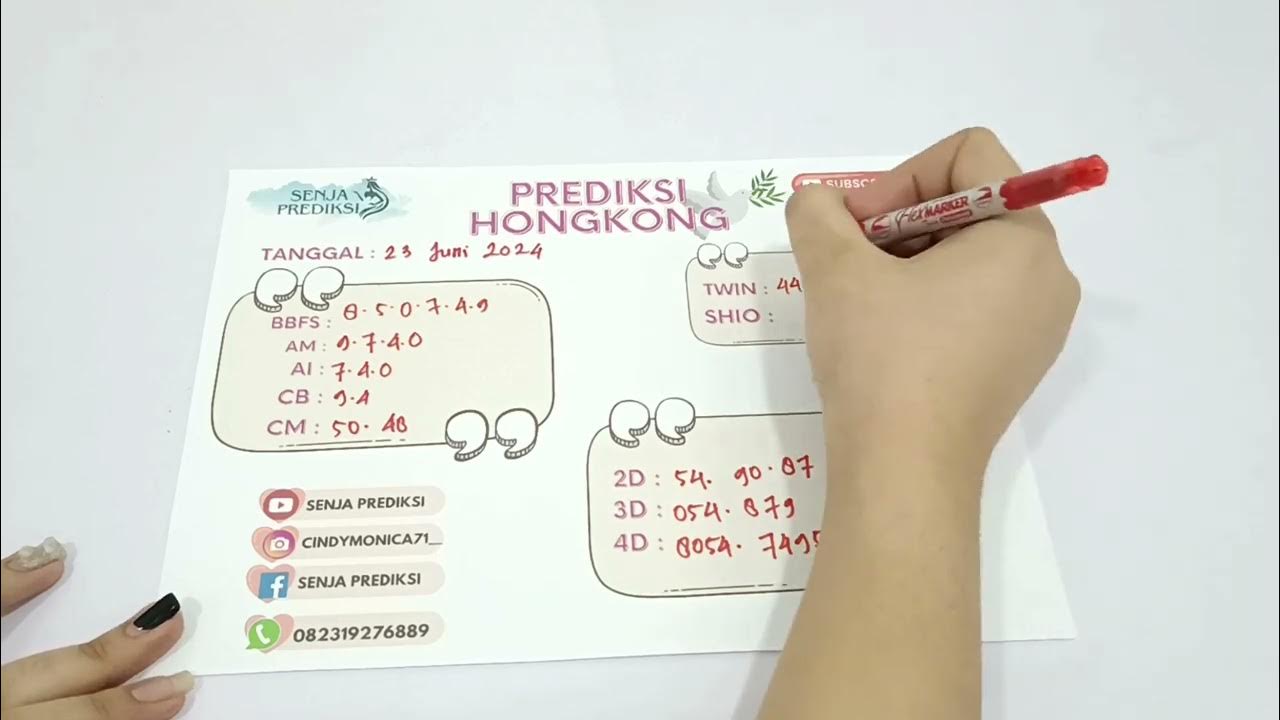 SENJA
PREDIKSI
PREDIKSI
HONGKONG
TANGGAL : 23 Juni 2024
BBFS : 8.5.0.7.4.9
AM : 9.7.4.0
AI : 7.4.0
CB : 9.4
CM : 50. 48
TWIN : 44
SHIO :
2D : 54. 90. 87
3D : 054. 879
4D : 8054. 7495
SENJA PREDIKSI
CINDYMONICA71_
SENJA PREDIKSI
082319276889
MARKER